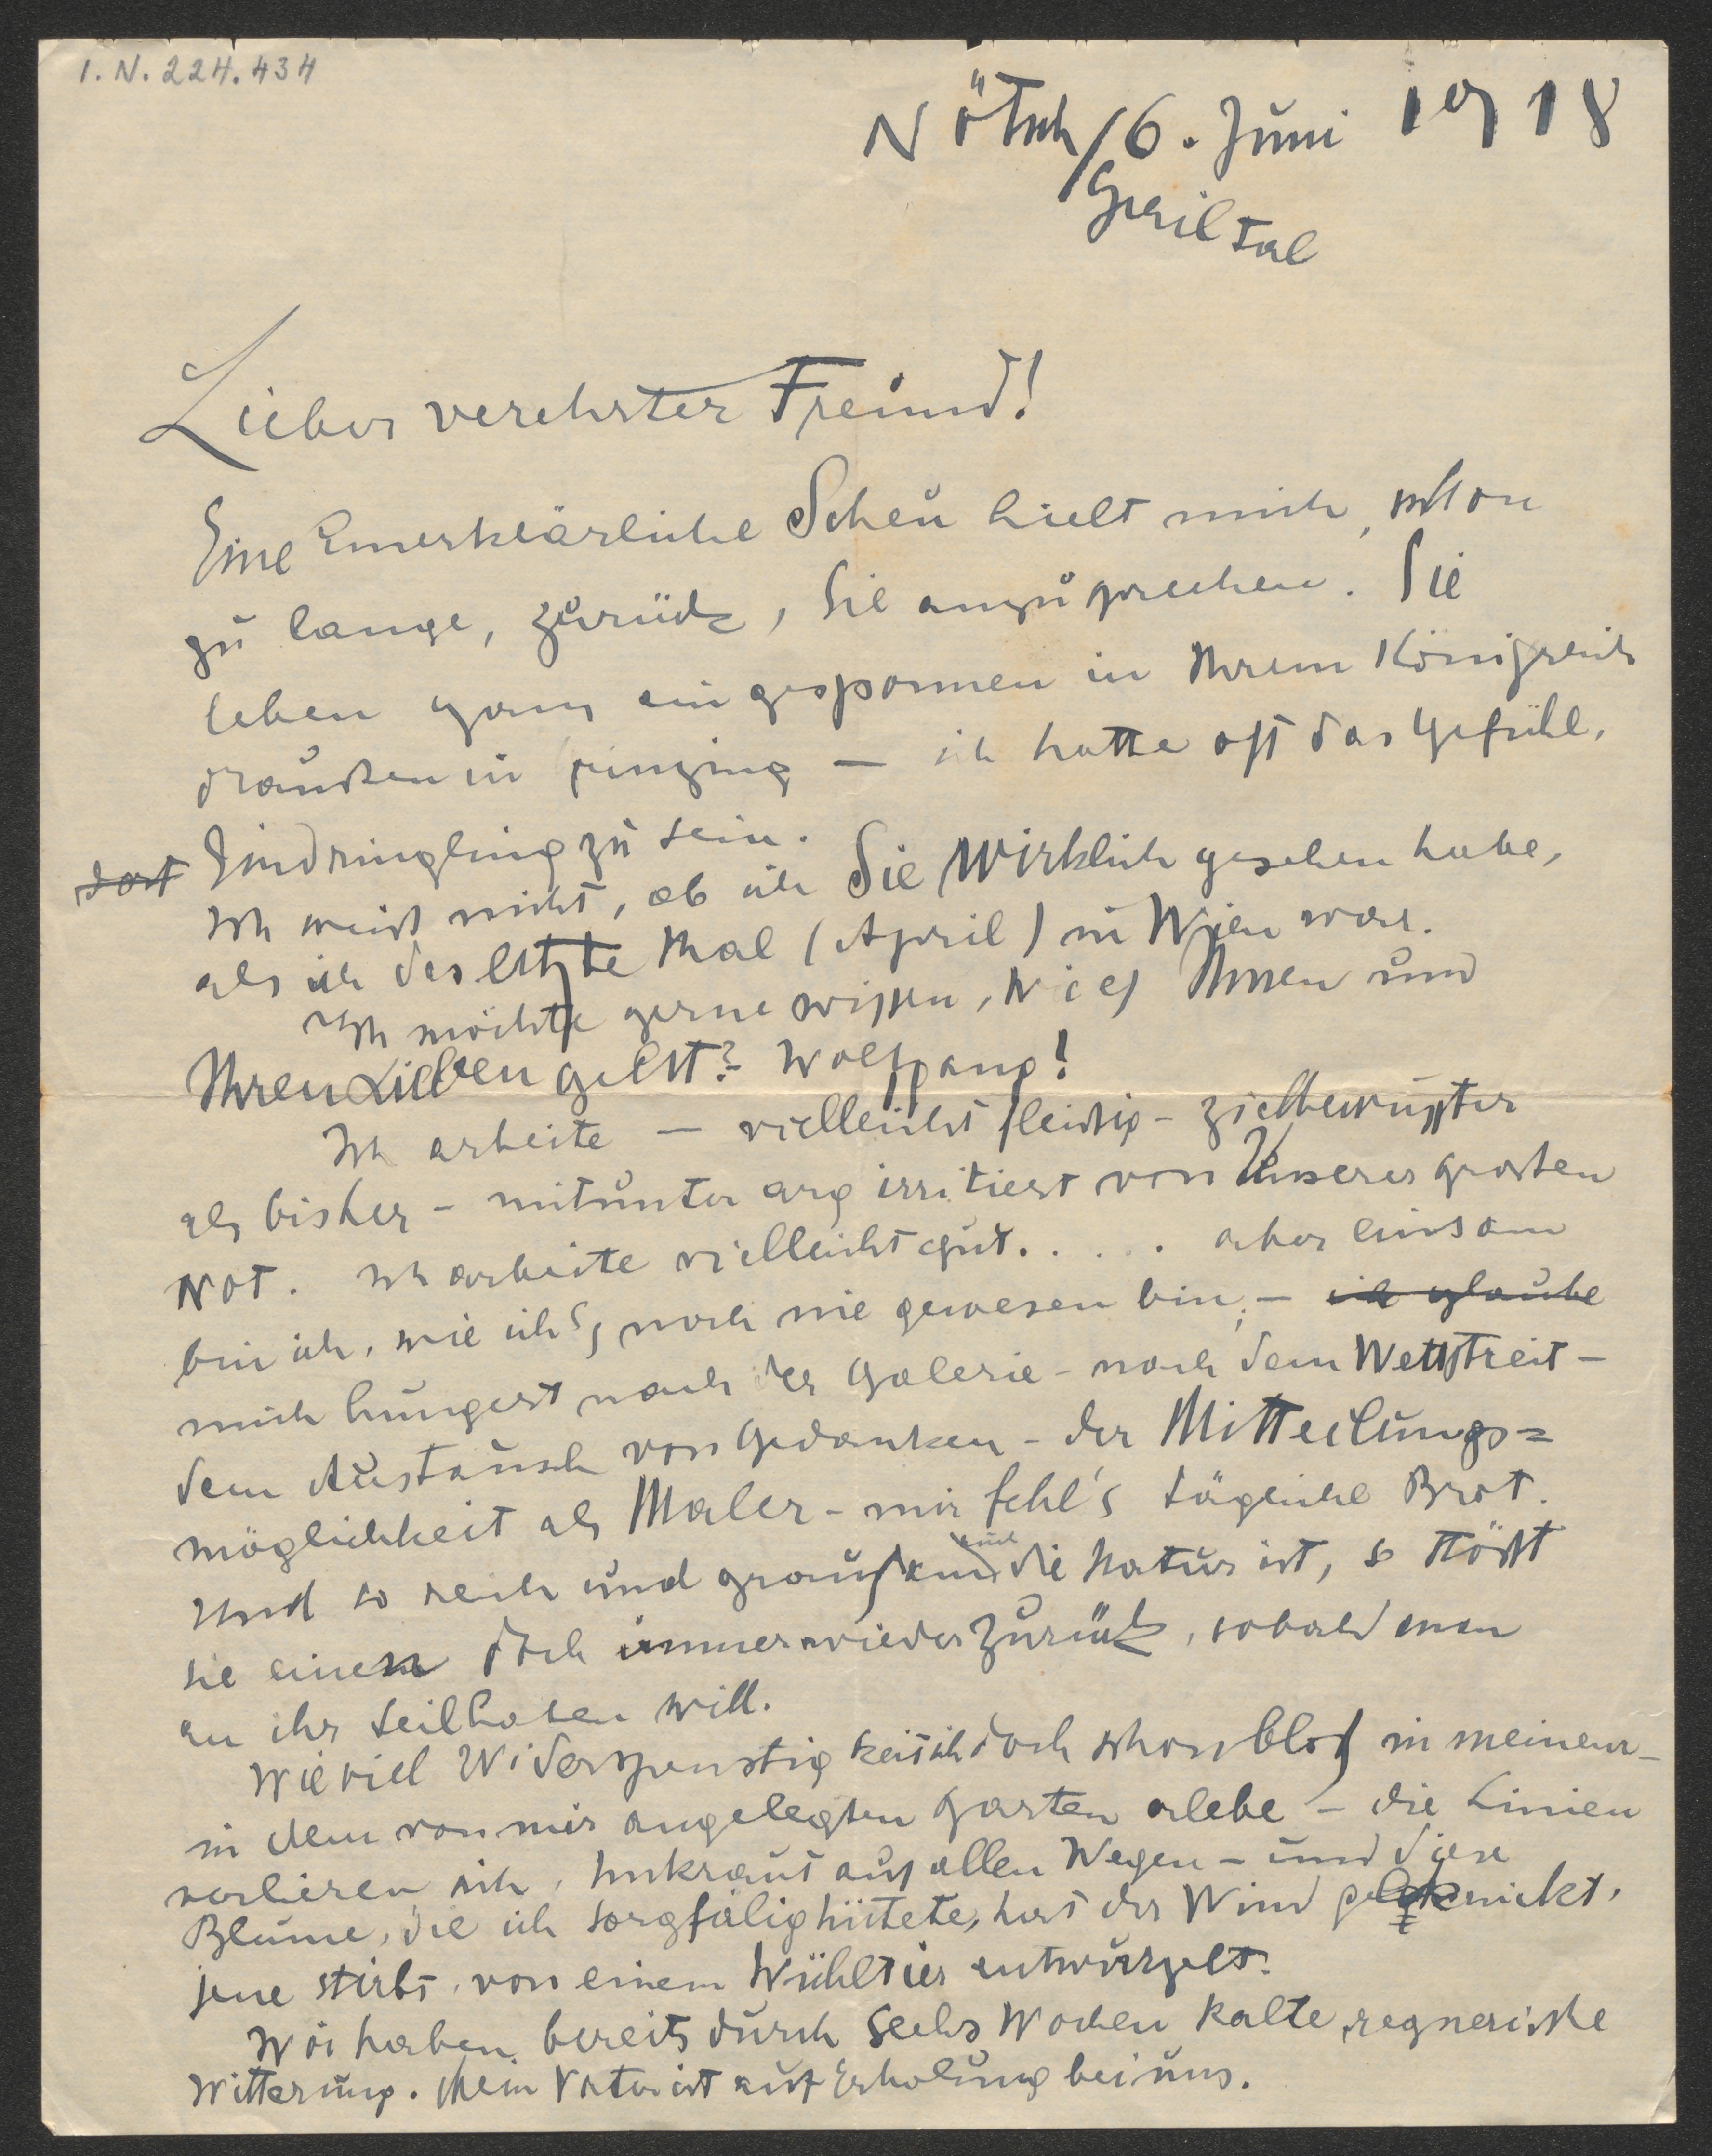 I. N. 224.434
Nötsch/6. Juni 1918
Gailtal
Lieber verehrter Freund!
Eine unerklärliche Scheu hielt mich, schon
zu lange, zurück, Sie anzusprechen. Sie
leben ganz eingesponnen in Ihrem Königreich
draußen in – ich hatte oft das Gefühl,
dort Eindringling zu sein.
Ich weiß nicht, ob ich Sie wirklich gesehen habe,
als ich das letzte Mal (April) in Wien war.
Ich möchte gerne wissen, wie es Ihnen und
Ihren Lieben geht? Wolfgang!
Ich arbeite – vielleicht fleißig – zielbewußter
als bisher – mitunter arg irritiert von unserer großen
Not. Ich arbeite vielleicht gut..... aber einsam
bin ich, wie ich's noch nie gewesen bin, – ich glaube
mich hungert nach der Galerie – nach dem Wettstreit –
dem Austausch von Gedanken – der Mitteilungs=
möglichkeit als Maler – mir fehl's tägliche Brot.
Und so reich und grausam auch die Natur ist, so stößt
sie einen doch immer wieder zurück, sobald man
an ihr teilhaben will.
Wieviel Widerspenstigkeit ich doch schon bloß in meinem –
in dem von mir angelegten Garten erlebe – die Linien
verlieren sich, Unkraut auf allen Wegen – und diese
Blume, die ich sorgfälig hütete, hat der Wind geknickt,
jene stirbt, von einem Wühltier entwurzelt.
Wir haben bereits durch sechs Wochen kalte, regnerische
Witterung. Mein Vater ist auf Erholung bei uns.